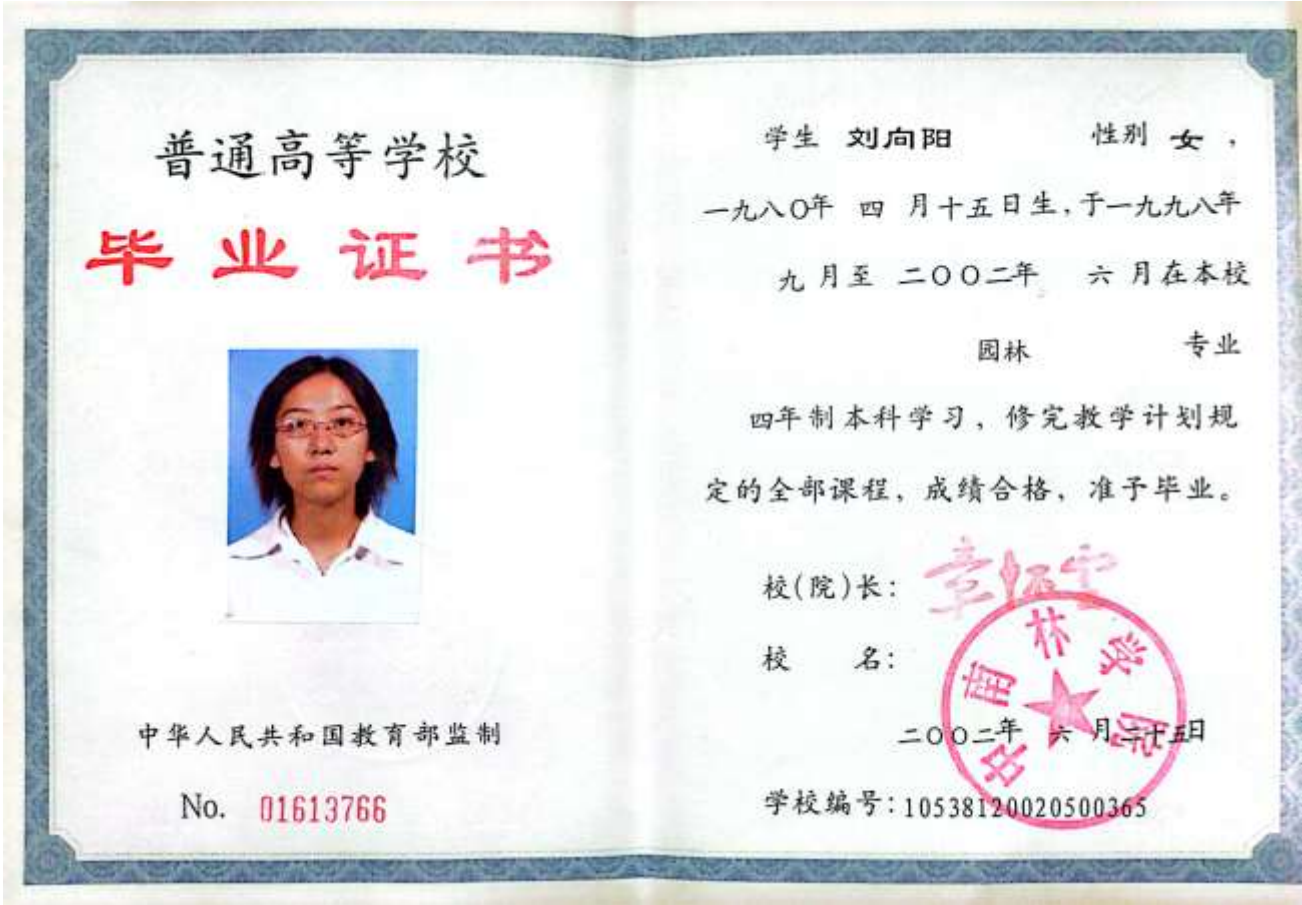 普通高等学校
毕业证书
中华人民共和国教育部监制
No. 01613766
学生 刘向阳 性别 女，
一九八〇年 四 月十五日生，于一九九八年
九 月至 二〇〇二年 六 月在本校
园林 专业
四年制本科学习，修完教学计划规
定的全部课程，成绩合格，准予毕业。
校(院)长：
校 名：
中南林学院
二〇〇二年 六 月二十五日
学校编号：10538120020500365